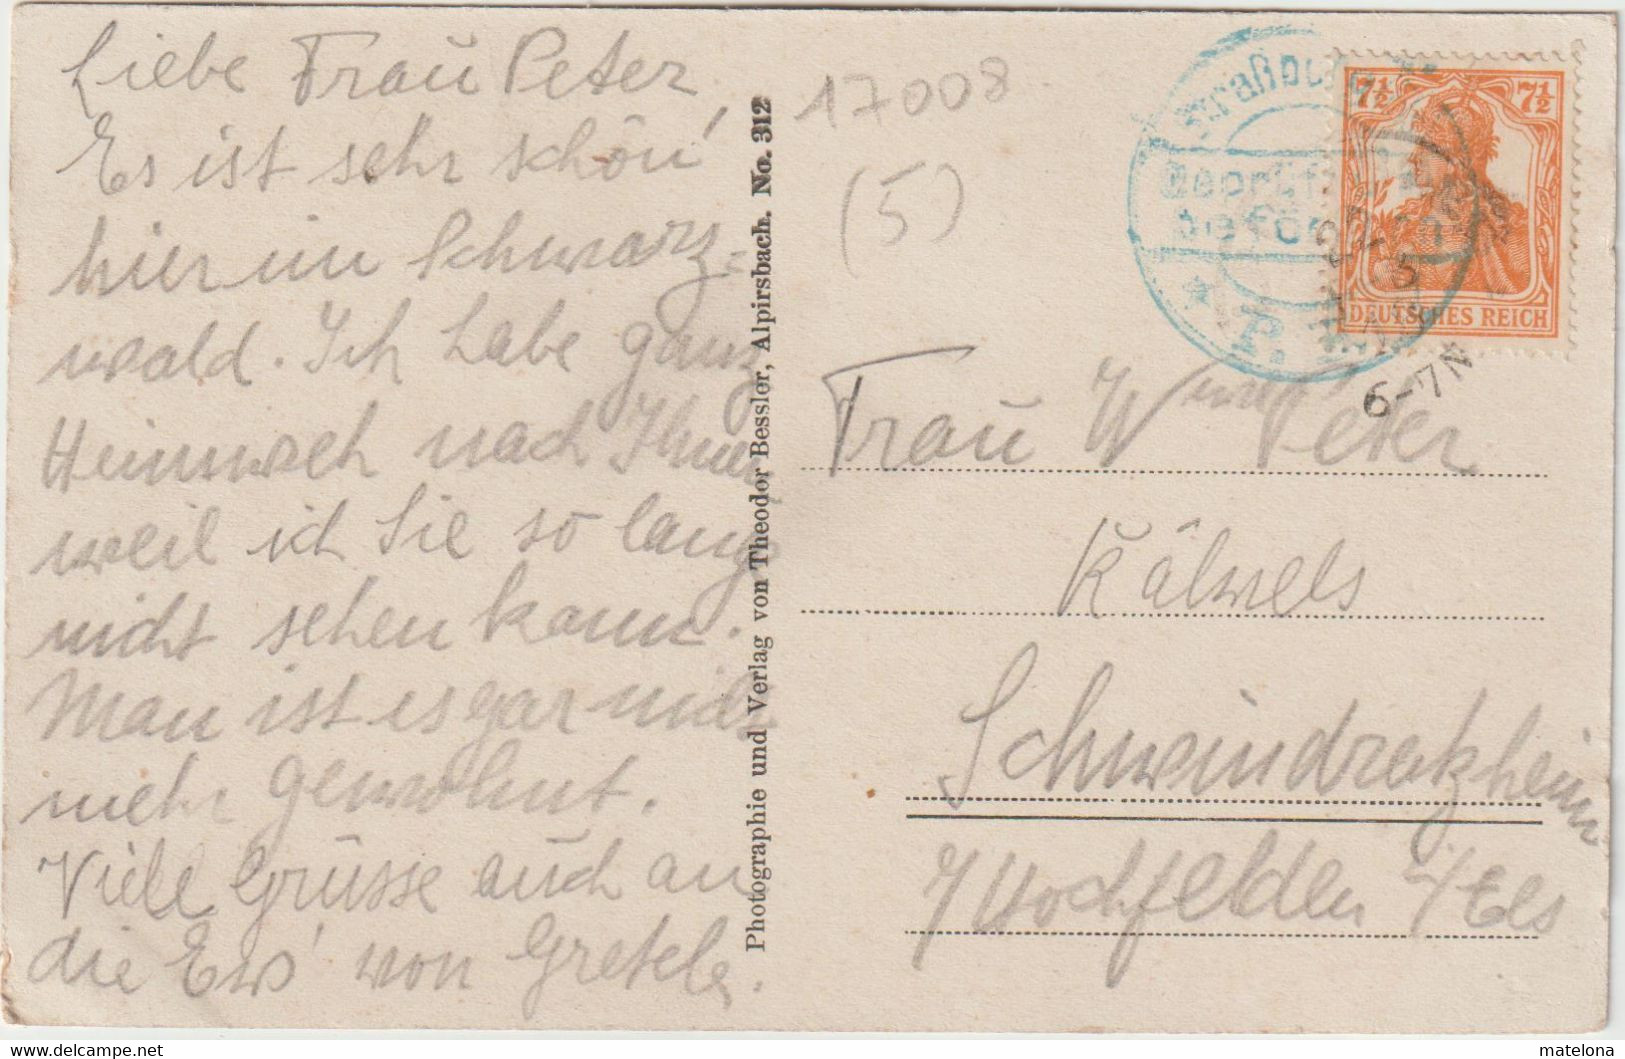 Liebe Frau Peter,
Es ist sehr schön
hier im Schwarz-
wald. Ich habe ganz
Heimweh nach Ihnen
weil ich Sie so lange
nicht sehen kann.
Man ist es gar nicht
mehr gewohnt.
Viele Grüsse auch an
die von Gretele.
Photographie und Verlag von Theodor Bessler, Alpirsbach. No. 312
17008
(5)
Geprüft
P. K.
7½ 7½
DEUTSCHES REICH
6-7N
Frau Peter
Schwindratzheim
Hochfelden i/Els
matelona
https://www.delcampe.net